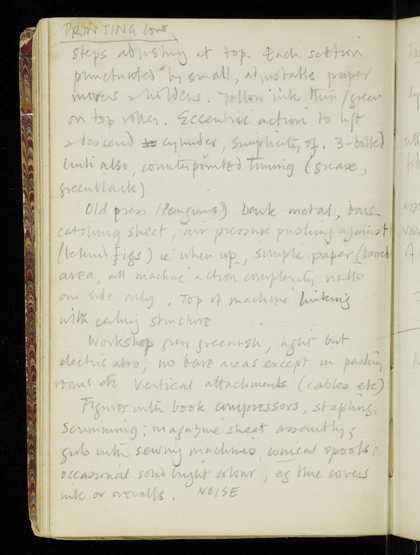 PRINTING cont
steps adjusting at top. Each section
punctuated by small, adjustable paper
movers & holders. Yellow ink thin/green
on top roller. Eccentric action to lift
& descend cylinder, simplicity of. 3-bolted
units also, counterpointed timing (grease,
green black)
Old press (Penguins) dark metal,
catching sheet, air pressure pushing against
(behind figs) ie when up, simple paper
area, all machine action complexity
one side only. Top of machine linking
with ceiling structure
Workshop grey greenish, light but
electric also, no bare areas except in packing
room etc Vertical attachments (cables etc)
Figures with book compressors, stapling,
scrimming; magazine sheet assembly;
girls with sewing machines, conical spools;
occasional solid bright colour, eg blue covers
ink or overalls. NOISE